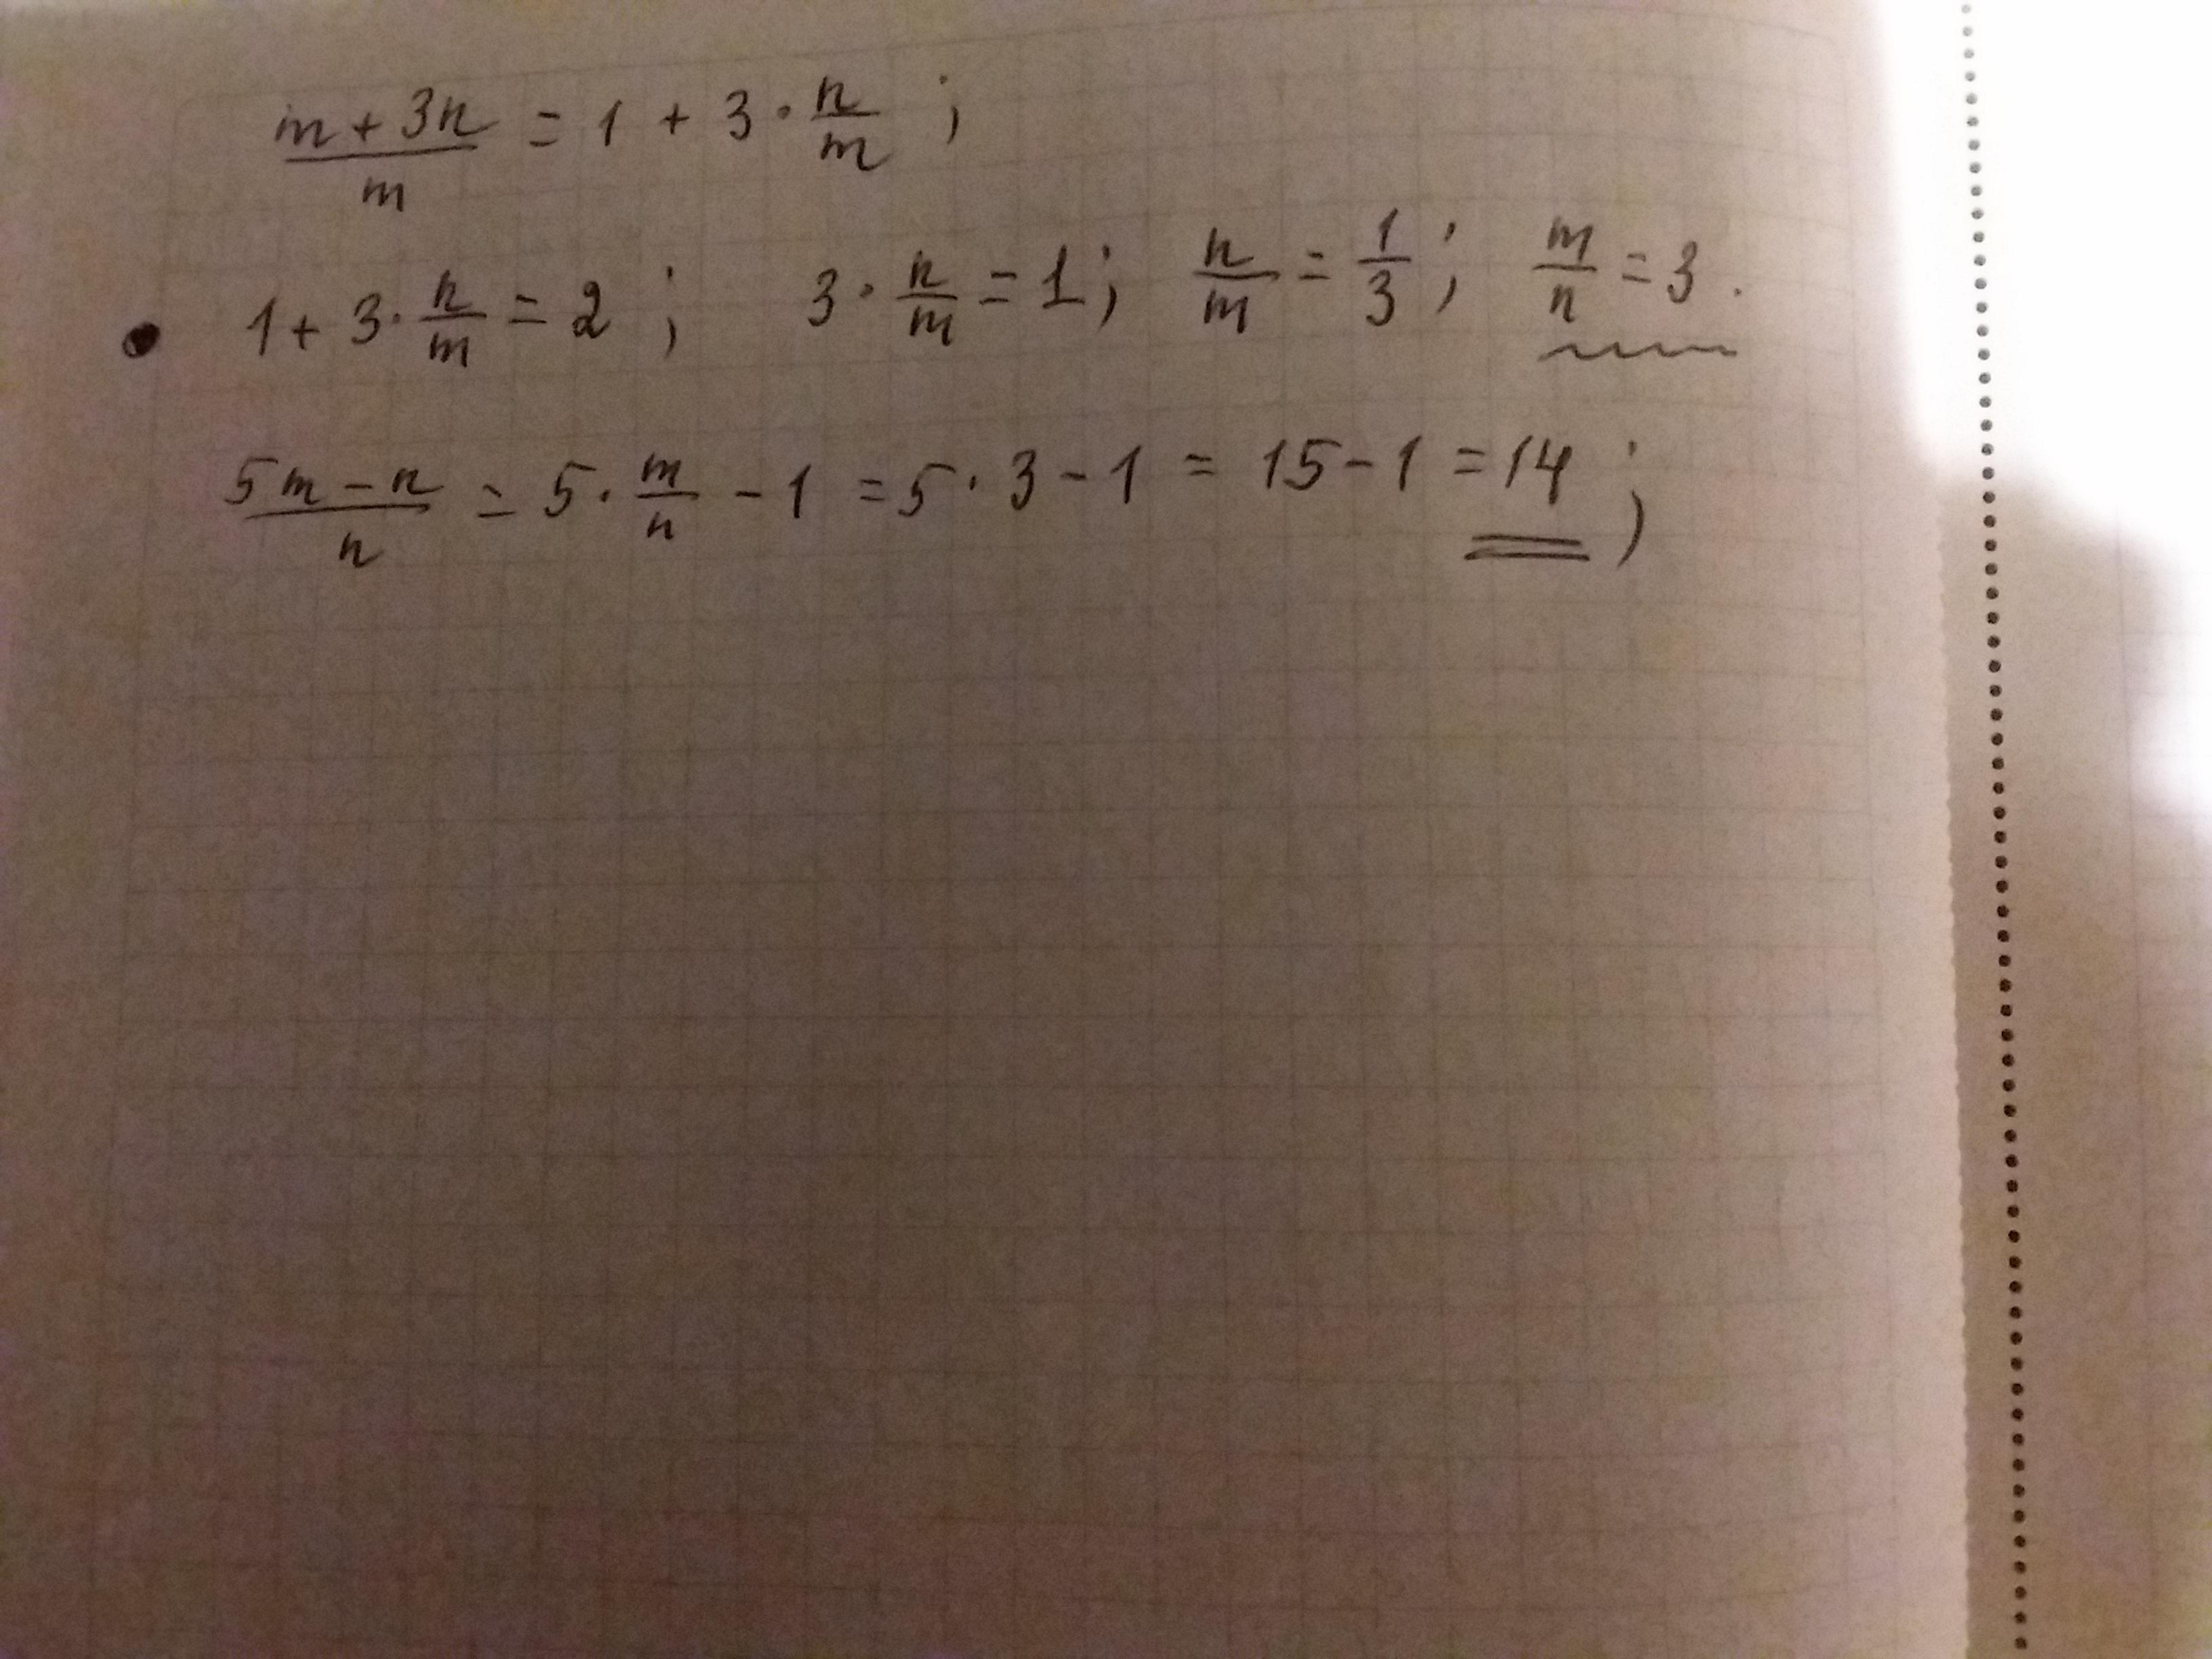 (m + 3n)/m = 1 + 3 · n/m ;
1 + 3 · n/m = 2 ; 3 · n/m = 1 ; n/m = 1/3 ; m/n = 3 .
(5m - n)/n = 5 · m/n - 1 = 5 · 3 - 1 = 15 - 1 = 14 ;